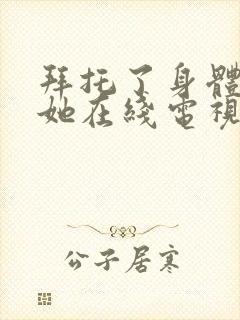 拜托了身體
她在綫電視
公子居寒